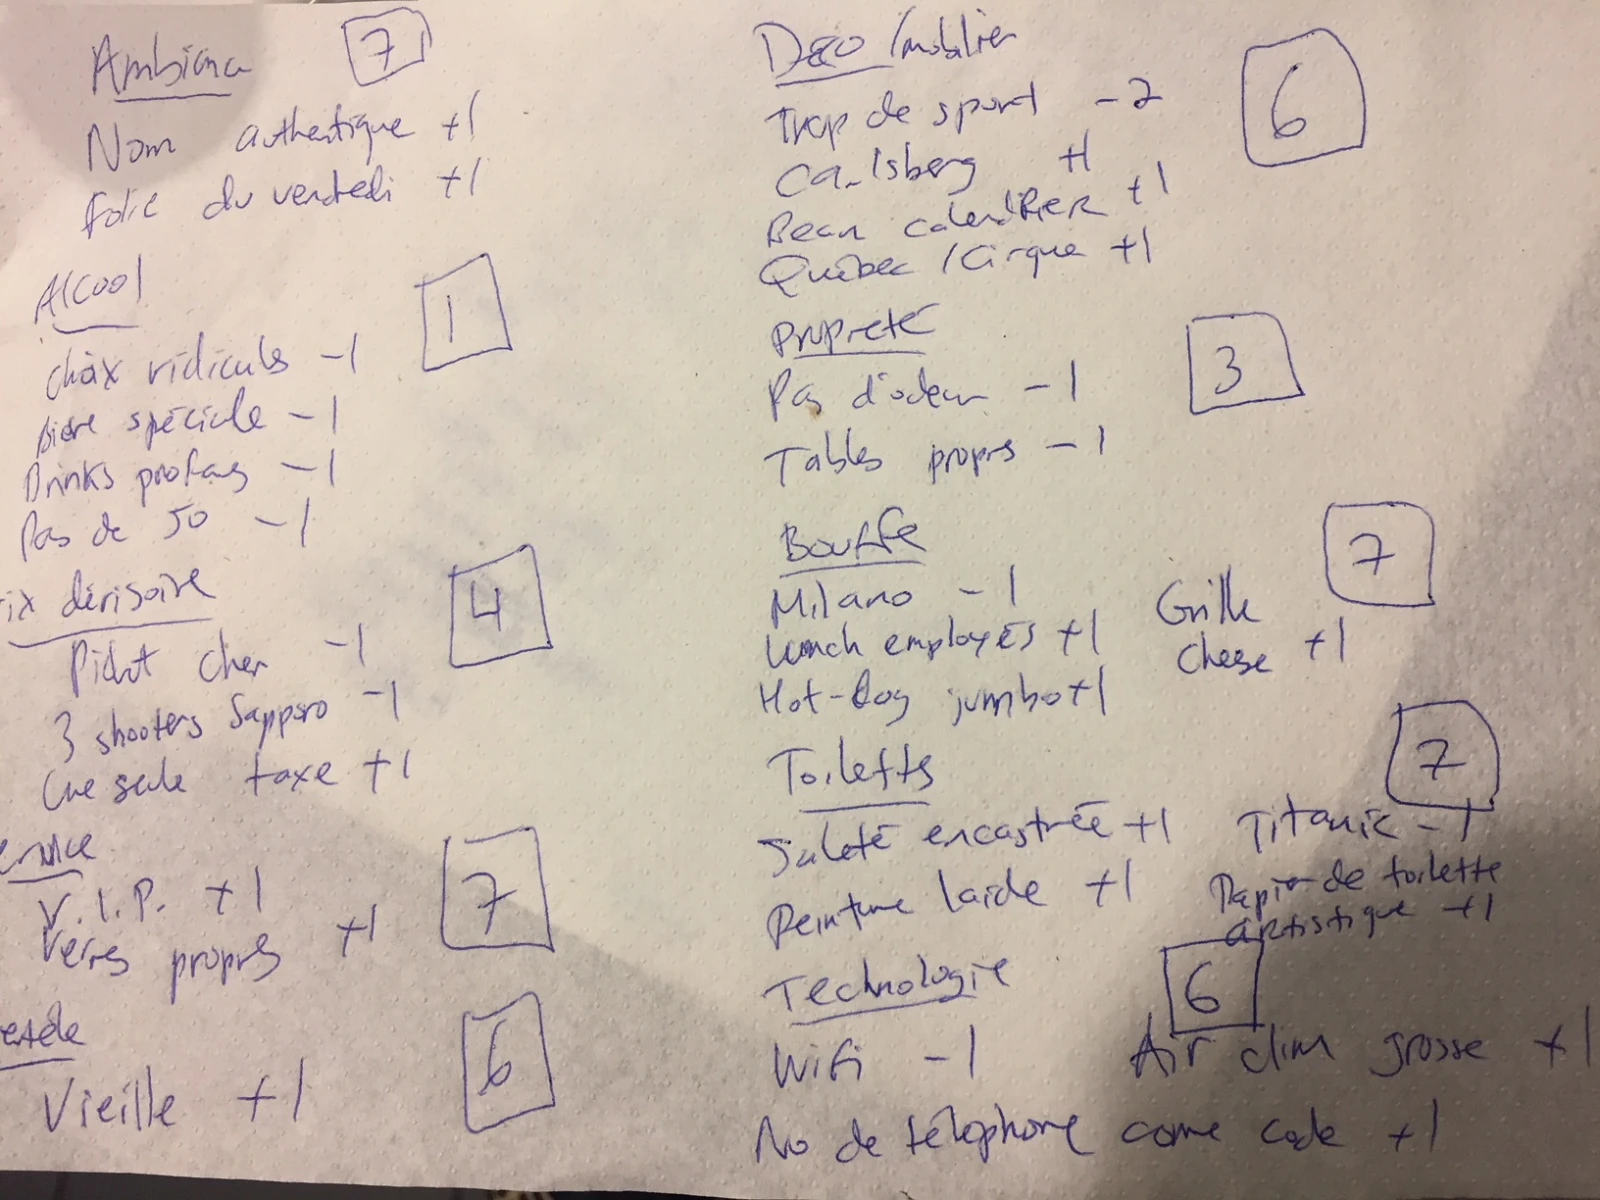 Ambiance 7
Nom authentique +1
Folie du vendredi +1
Alcool 1
Choix ridicules -1
Bière spéciale -1
Drinks -1
Pas de 50 -1
ix dérisoire 4
Pichet cher -1
3 shooters Sapporo -1
Une seule taxe +1
ervice 7
V.I.P. +1
Verres propres +1
entèle 6
Vieille +1
Déco/mobilier 6
Trop de sport -2
Carlsberg +1
Beau calendrier +1
Québec/Cirque +1
Propreté 3
Pas d'odeur -1
Tables propres -1
Bouffe 7
Milano -1
Lunch employés +1
Hot-Dog jumbo +1
Grille
Cheese +1
Toilettes 7
Saleté encastrée +1
Peinture laide +1
Titanic -1
Papier de toilette
artistique +1
Technologie 6
Wifi -1
Air clim grosse +1
No de téléphone come code +1